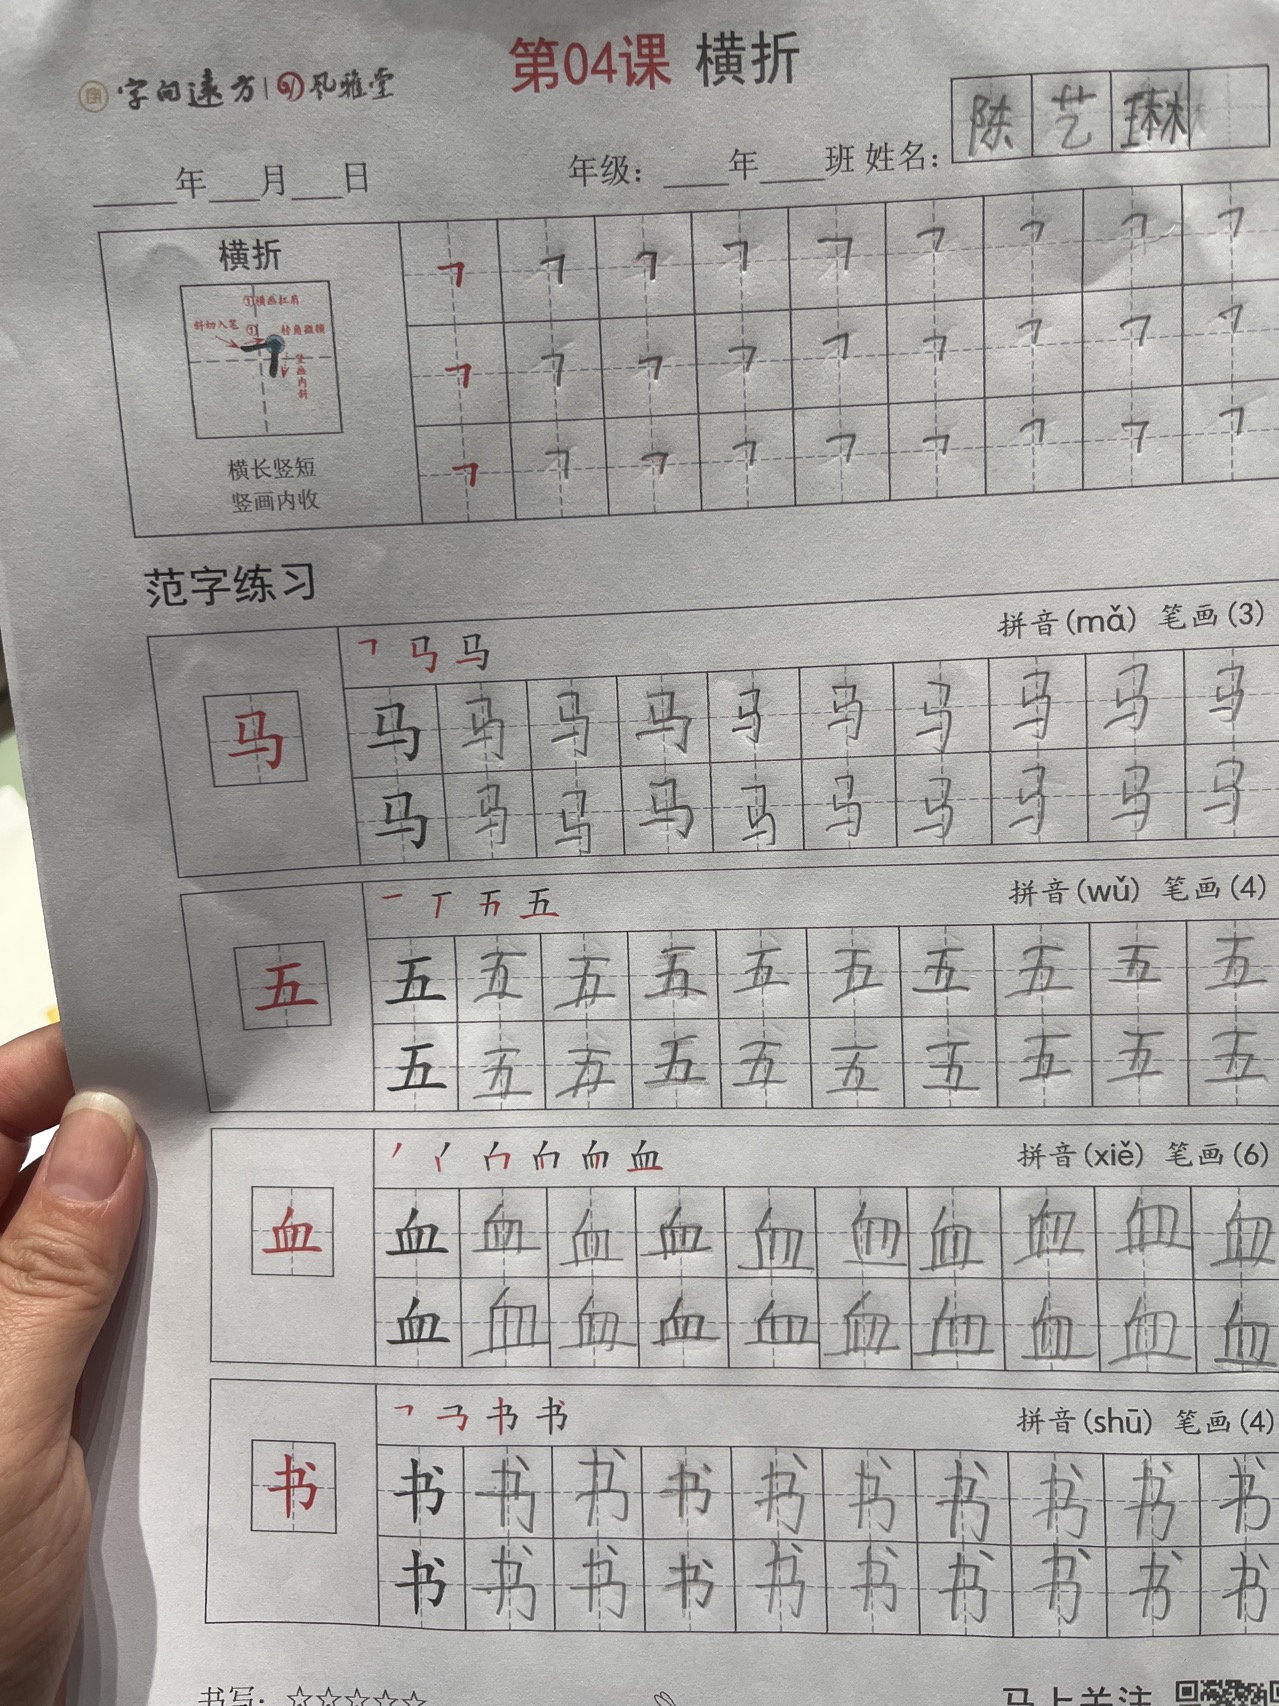 第04课 横折
字问遠方 | 风雅堂
陈艺琳
____年__月__日 年级：___年___班 姓名：
横折
①横画扛肩
斜切入笔 ① 转角微顿
竖画内斜
横长竖短
竖画内收
范字练习
拼音(mǎ) 笔画(3)
马 马 马 马 马 马 马 马 马 马 马
马 马 马 马 马 马 马 马 马 马
拼音(wǔ) 笔画(4)
五 五 五 五 五 五 五 五 五 五 五
五 五 五 五 五 五 五 五 五 五
拼音(xiě) 笔画(6)
血 血 血 血 血 血 血 血 血 血 血
血 血 血 血 血 血 血 血 血 血
拼音(shū) 笔画(4)
书 书 书 书 书 书 书 书 书 书 书
书 书 书 书 书 书 书 书 书 书
书写：☆☆☆☆☆ 马上关注